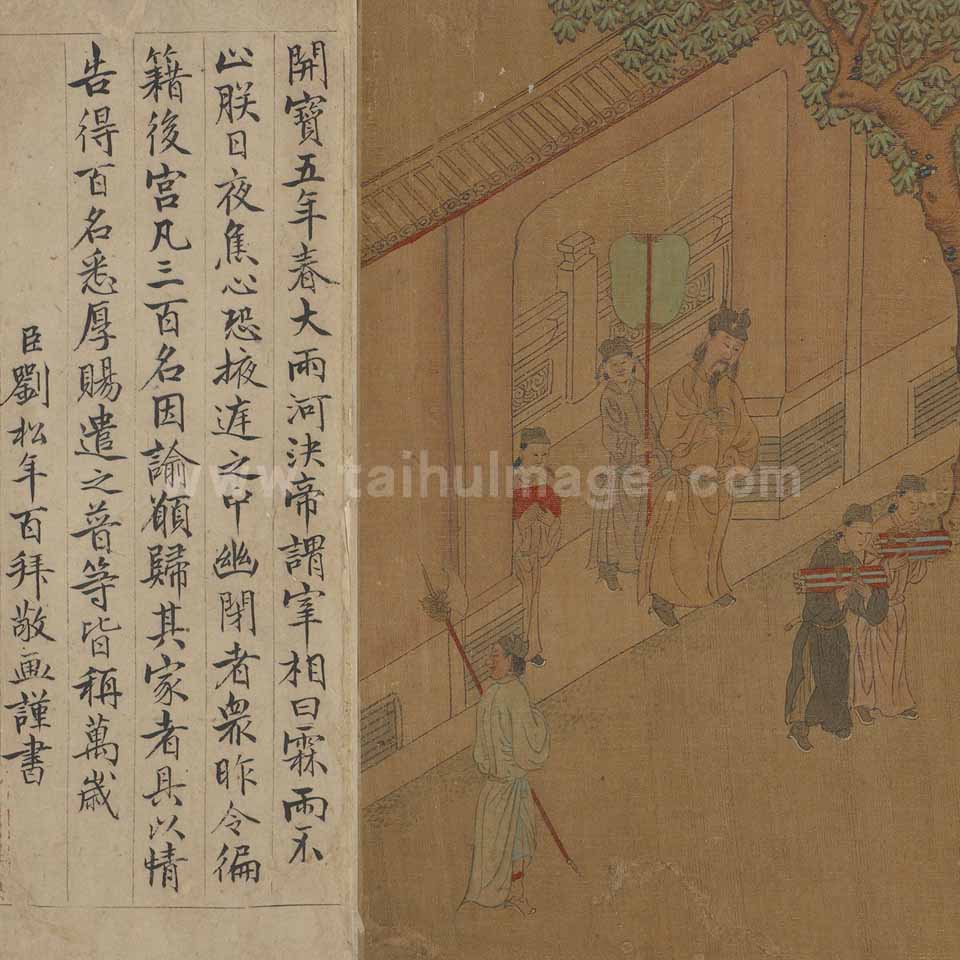 開寶五年春大雨河決帝謂宰相曰霖雨不
止朕日夜焦心恐掖庭之中幽閉者衆昨令徧
籍後宮凡三百名因諭願歸其家者具以情
告得百名悉厚賜遣之普等皆稱萬歲
臣劉松年百拜敬畫謹書
www.taihuImage.com